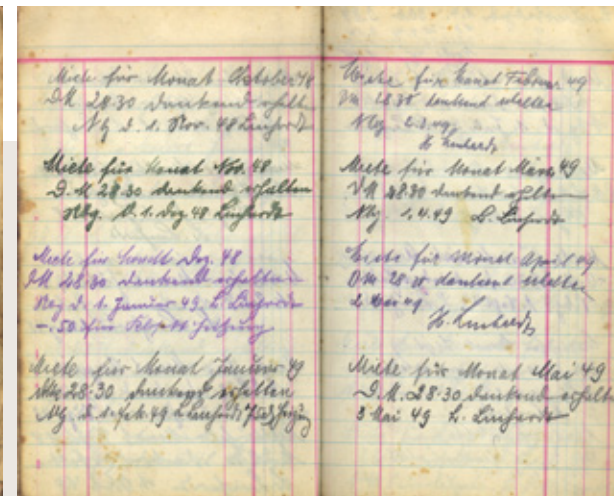 Miete für Monat Oktober 48
DM 28.30 dankend erhalten
Nbg d. 1. Nov. 48 Linhardt
Miete für Monat Nov. 48
D.M 28.30 dankend erhalten
Nbg. d. 1. Dez 48 Linhardt
Miete für Monat Dez. 48
DM 28.30 dankend erhalten
Nbg d. 1. Januar 49. L. Linhardt
-.50 für
Miete für Monat Januar 49
28.30 dankend erhalten
Nbg. d. 1. Feb. 49 L. Linhardt
Miete für Monat Februar 49
DM 28.30 dankend erhalten
Nbg 2.3.49
Linhardt
Miete für Monat März 49
DM 28.30 dankend erhalten
Nbg 1.4.49 L. Linhardt
Miete für Monat April 49
DM 28.30 dankend erhalten
2 Mai 49
Linhardt
Miete für Monat Mai 49
D.M. 28.30 dankend erhalten
3 Mai 49 L. Linhardt